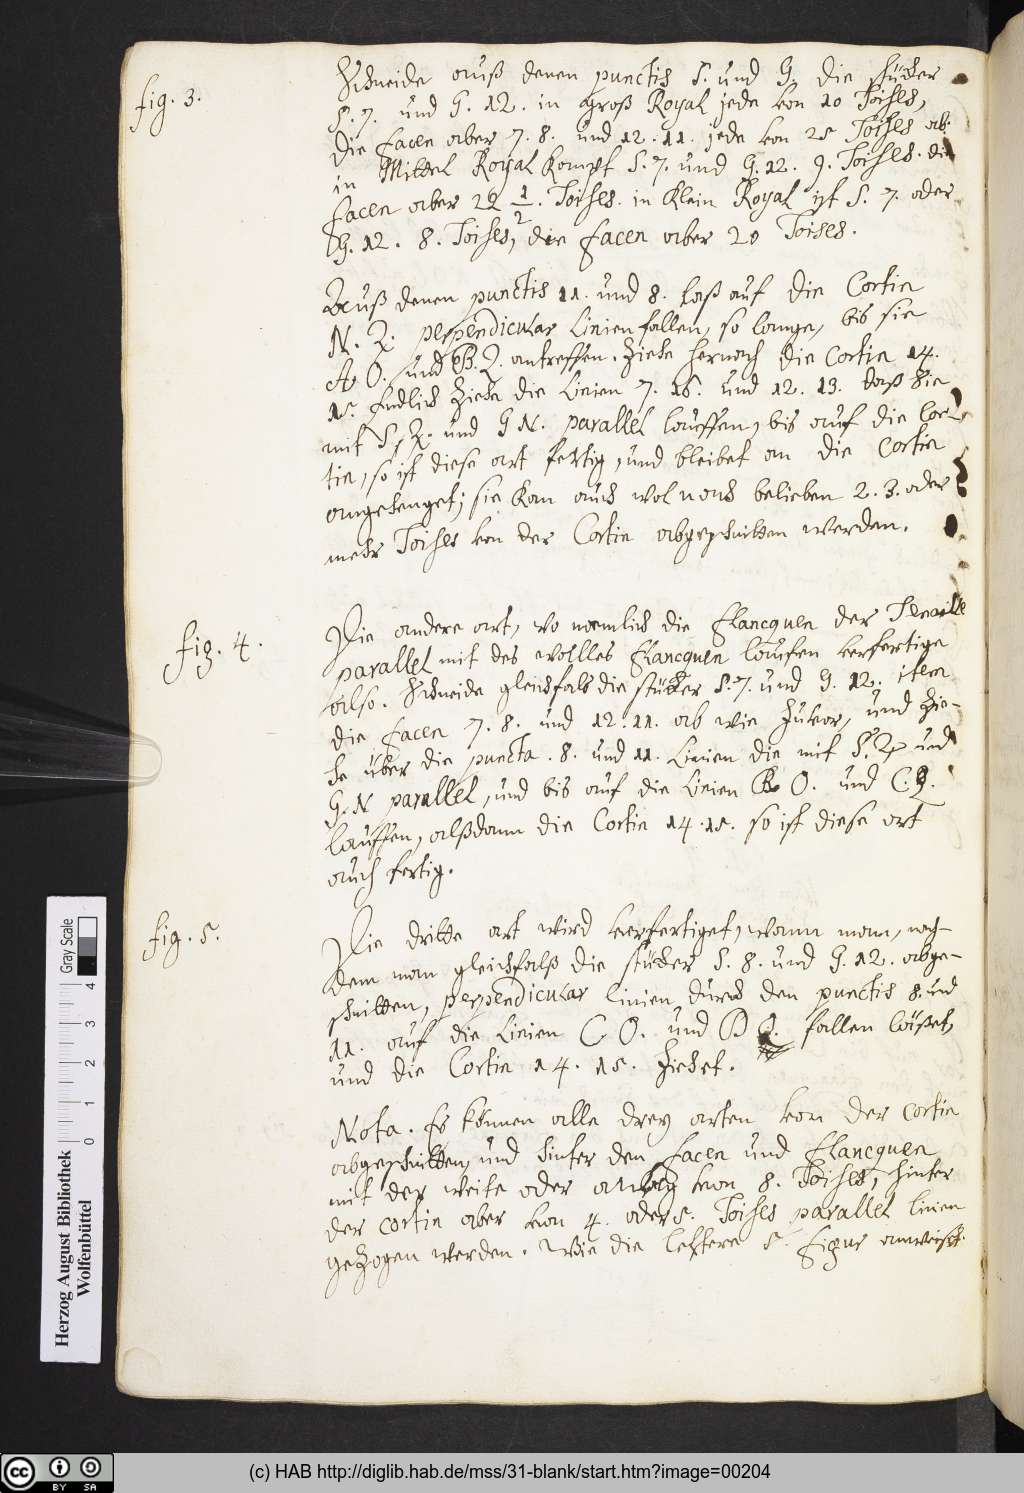 fig. 3.
Schneide auß denen punctis S. und G. die stücker
S. 7. und G. 12. in Groß Royal jede von 10 Toises,
die facen aber 7. 8. und 12. 11. jede von 25 Toises ab.
in Mittel Royal kompt S. 7. und G. 12. 9. Toises. die
facen aber 22 1/2. Toises. in Klein Royal ist S. 7. oder
G. 12. 8. Toises, die facen aber 20 Toises.
Auß denen punctis 11. und 8. laß auf die Cortin
N. Z. perpendicular Linien fallen, so lange, bis sie
A O. und B. Q. antreffen. Ziehe hernach die Cortin 14.
15. Endlich ziehe die Linien 7. 16. und 12. 13. daß sie
mit S, Z. und G N. parallel lauffen, bis auf die Cor-
tin, so ist diese art fertig, und bleibet an die Cortin
angehenget; sie kan auch wol nach belieben 2. 3. oder
mehr Toises von der Cortin abgeschnitten werden.
fig. 4.
Die andere art, wo nemlich die Flancquen der Tenaille
parallel mit des wallles Flancquen lauffen verfertige
also. Schneide gleichfals die stücker S. 7. und G. 12. item
die facen 7. 8. und 12. 11. ab wie zuvor, und zie-
he über die puncta. 8. und 11. Linien die mit S. Z und
G. N parallel, und bis auf die Linien B O. und C. Q.
lauffen, alßdann die Cortin 14. 15. so ist diese art
auch fertig.
fig. 5.
Die dritte art wird verfertiget, wann man, nach-
dem man gleichfalß die stücker S. 8. und G. 12. abge-
schnitten, perpendicular linien durch den punctis 8. und
11. auf die Linien C O. und D Q. fallen läßet,
und die Cortin 14. 15. ziehet.
Nota. Es können alle drey arten von der Cortin
abgeschnitten, und hinter den facen und Flancquen
mit der weite oder von 8. Toises, hinter
der cortin aber von 4. oder 5. Toises parallel linien
gezogen werden. Wie die letztere 5. figur anweiset.
Herzog August Bibliothek
Wolfenbüttel
0 1 2 3 4
Gray Scale
(c) HAB http://diglib.hab.de/mss/31-blank/start.htm?image=00204
cc BY SA